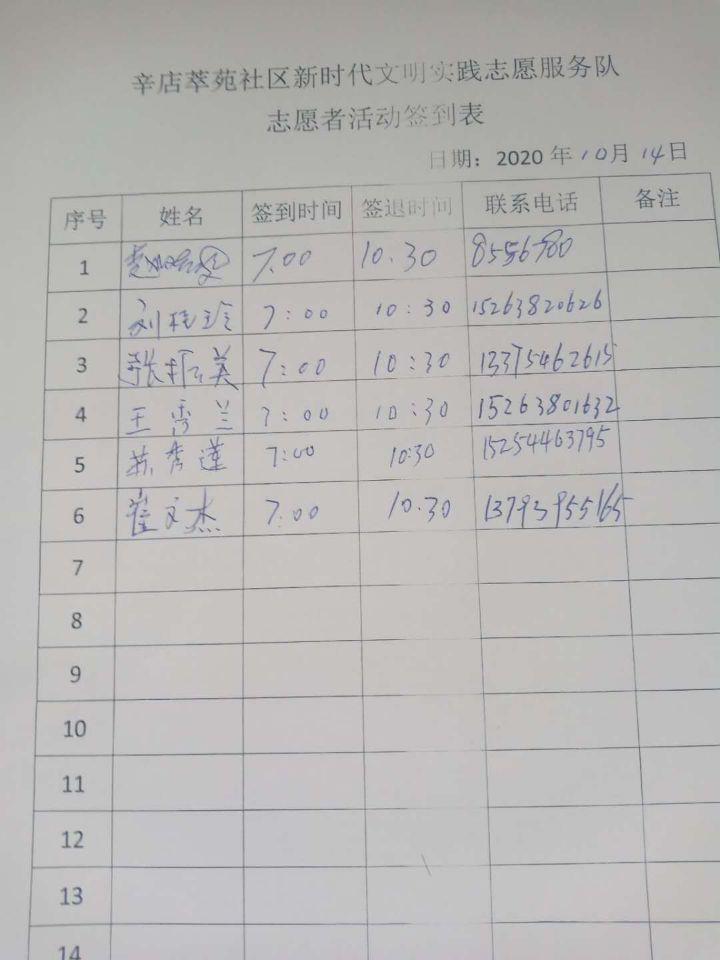 辛店萃苑社区新时代文明实践志愿服务队
志愿者活动签到表
日期：2020 年 10月 14日
序号 姓名 签到时间 签退时间 联系电话 备注
1 7.00 10.30 8556780
2 刘桂玲 7:00 10:30 15263820626
3 张振英 7:00 10:30 13375462615
4 王秀兰 7:00 10:30 15263801632
5 苏秀莲 7:00 10:30 15254463795
6 崔文杰 7:00 10.30 13793955165
7
8
9
10
11
12
13
14